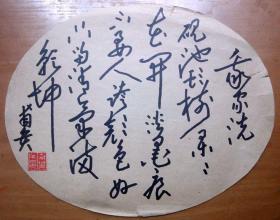 我家洗
砚池头树朵々
花开淡墨痕
不要人誇颜色好
只留清气满
乾坤